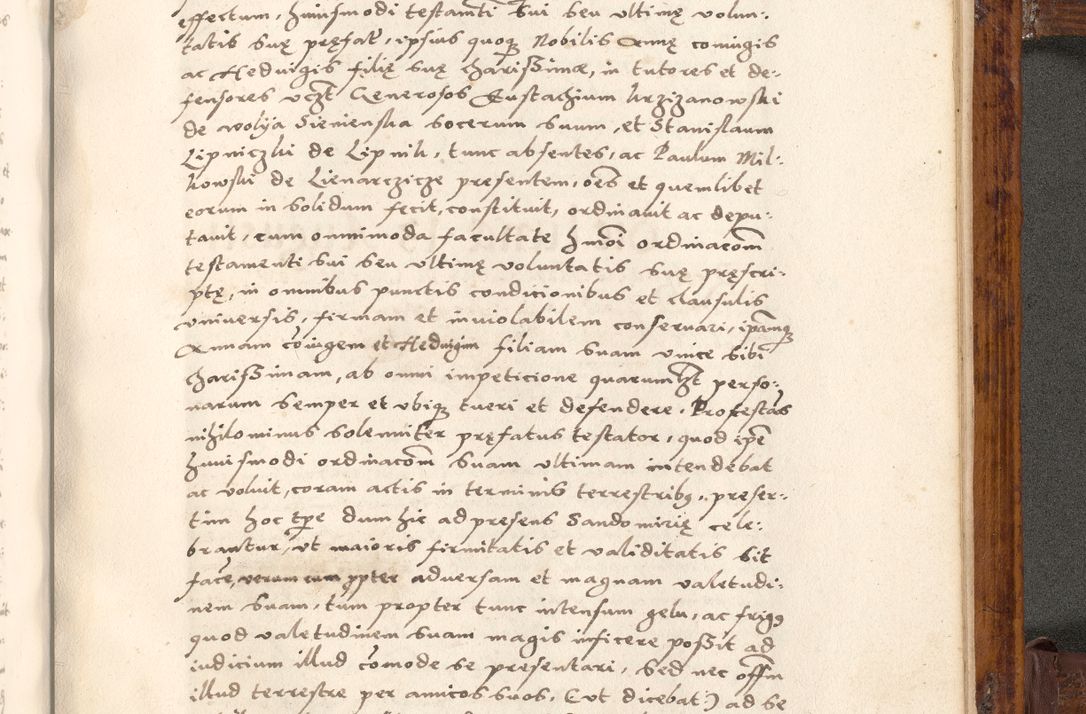 effectum, huiusmodi testamti sui seu ultimę volun-
tatis suę pręfat, ipsius quoq Nobilis Annę coniugis
ac Hedvigis filię suę charissimæ, in tutores et de-
fensores vczt Generosos Eustachium Krzizanowski
de Wolya Sienienska socerum suum, et Stanislaum
Lipniczki de Lipnik, tunc absentes, ac Paulum Mil-
kowski de Lienarczicze presentem, oes et quemlibet
eorum in solidum fecit, constituit, ordinavit ac depu-
tavit, cum omnimoda facultate hmoi ordinacom
testamenti sui seu ultimę voluntatis suę pręscri-
ptę, in omnibus punctis condicionibus et clausulis
universis, firmam et inviolabilem conservari, ipamq
Annam coiugem et Hedvigim filiam suam unice sibi
charissimam, ab omni impeticione quarumlbt perso-
narum semper et ubiq tueri et defendere. Protestans
nihilominus solemniter pręfatus testator, quod ipe
huiusmodi ordinacom suam ultimam intendebat
ac voluit, coram actis in terminis terrestribq, preser-
tim hoc tpe dum hic ad presens Sandomirię cele-
brantur, ut maioris firmitatis et validitatis sit
face, verum cum ppter adversam et magnam valetudi-
nem suam, tum propter tunc intensum gelu, ac frigq
quod valetudinem suam magis inficere possit ad
iudicium illud comode se presentari, sed nec offm
illud terrestre per amicos suos, (ut dicebat) ad se